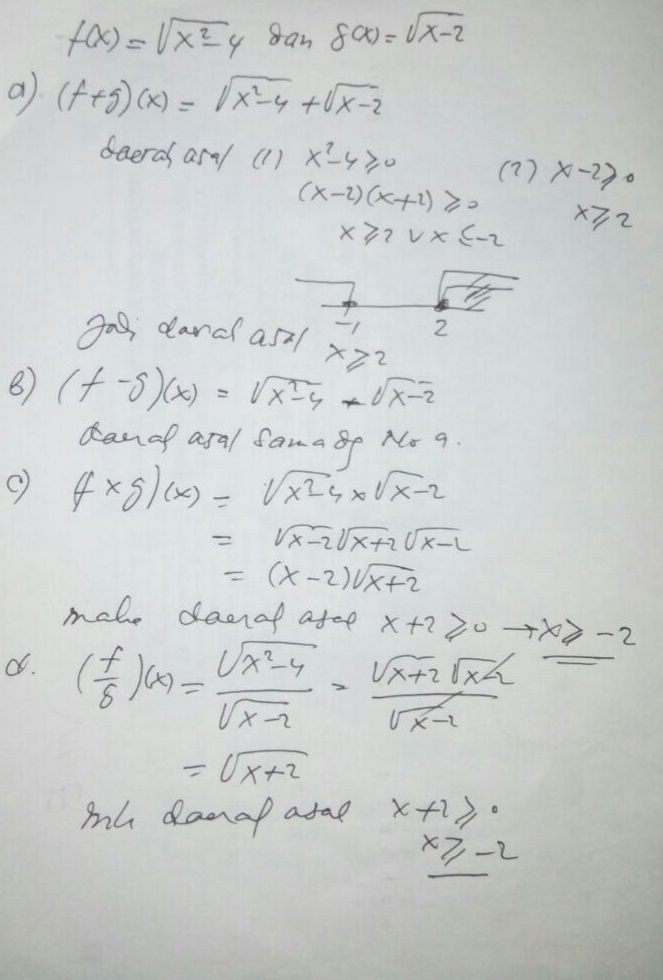 f(x) = √x²-4 dan g(x) = √x-2
a) (f+g)(x) = √x²-4 + √x-2
daerah asal (1) x²-4 ≥ 0 (2) x-2 ≥ 0
(x-2)(x+2) ≥ 0 x ≥ 2
x ≥ 2 ∨ x ≤ -2
-1 2
Jadi daerah asal x ≥ 2
b) (f - g)(x) = √x²-4 - √x-2
daerah asal sama dg No a.
c) f × g)(x) = √x²-4 × √x-2
= √x-2 √x+2 √x-2
= (x-2)√x+2
maka daerah asal x+2 ≥ 0 → x ≥ -2
d. (f/g)(x) = √x²-4 / √x-2 = √x+2 √x-2 / √x-2
= √x+2
mk daerah asal x+2 ≥ 0
x ≥ -2